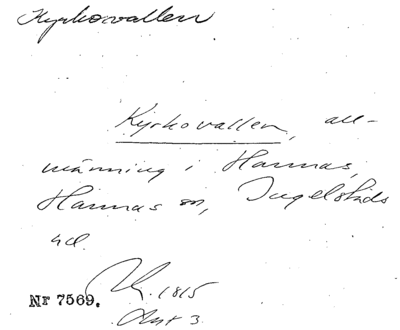 Kyrkovallen
Kyrkovallen, all-
männing i Hannas,
Hannas sn, Ingelstads
hd.
1815
Akt 3.
Nr 7569.